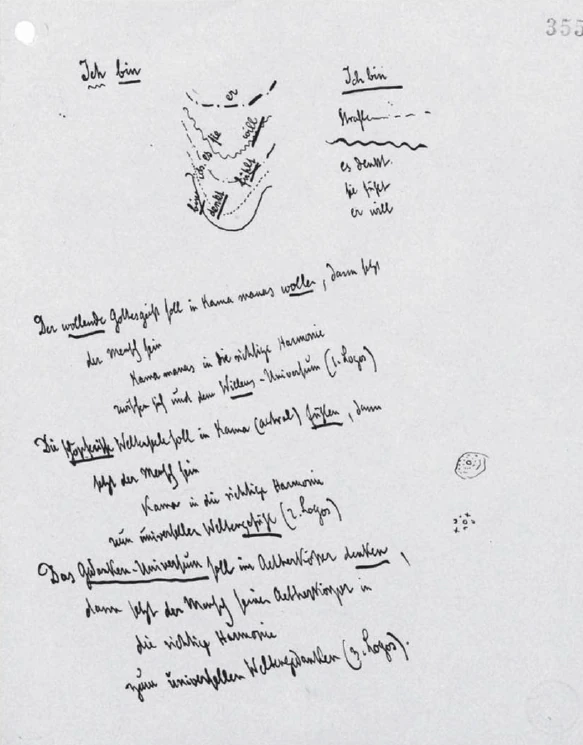 355
Ich bin
er
sie
will
es
ich
fühlt
bin
denkt
Ich bin
Strahl
es denkt.
sie fühlt
er will
Der wollende Gottesgeist soll in Kama manas wollen, dann setzt
der Mensch sein
Kama manas in die richtige Harmonie
zwischen sich und dem Willens-Universum (1. Logos)
Die schöpferische Weltseele soll in Kama (astral) fühlen, dann
setzt der Mensch sein
Kama in die richtige Harmonie
zum universellen Weltengefühl (2. Logos)
Das Gedanken-Universum soll im Aetherkörper denken,
dann setzt der Mensch seinen Aetherkörper in
die richtige Harmonie
zum universellen Weltengedanken (3. Logos).